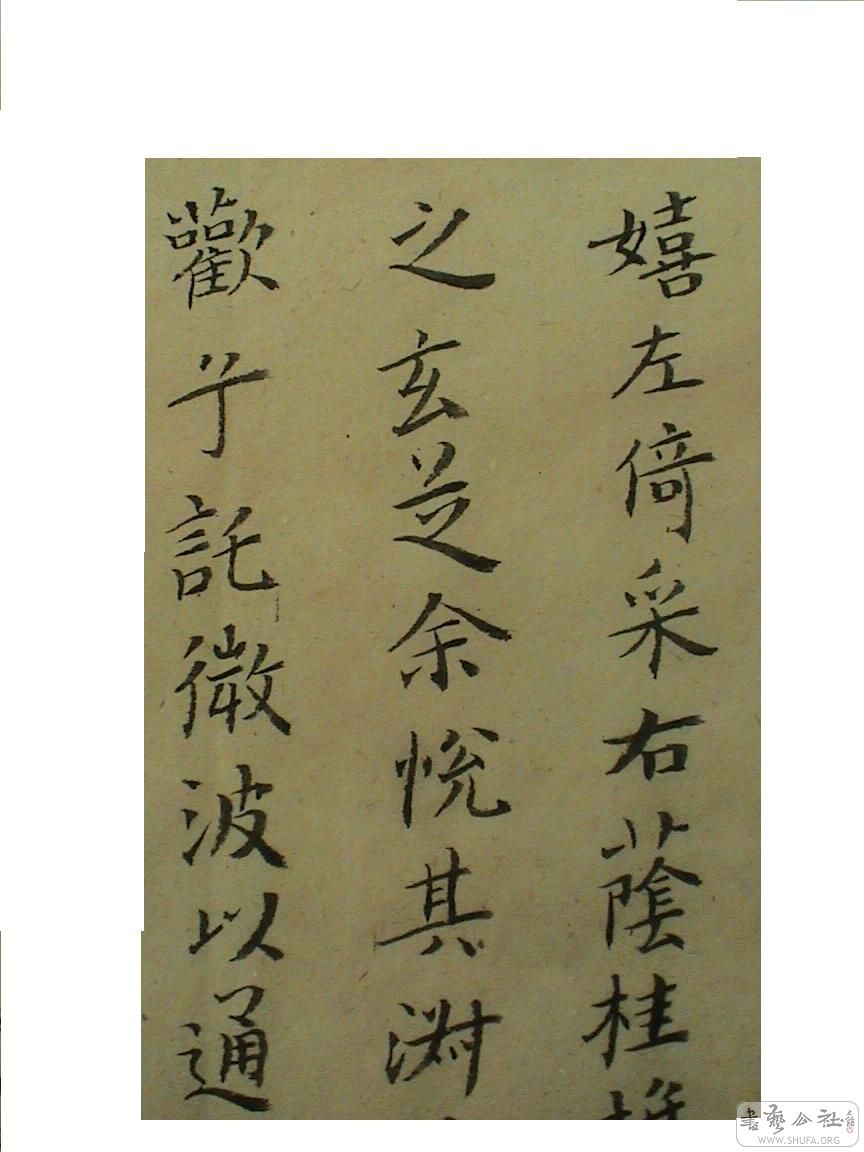 嬉左倚采右蔭桂
之玄芝余悅其淑
歡兮託微波以通
書藝公社
WWW.SHUFA.ORG